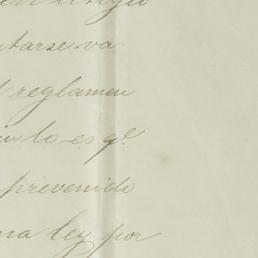 tarse va
reglamen
lo es qe.
prevenido
ley por